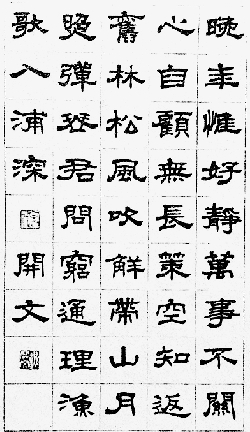 晚年惟好靜萬事不關
心自顧無長策空知返
舊林松風吹解帶山月
照彈琴君問窮通理漁
歌入浦深
開文